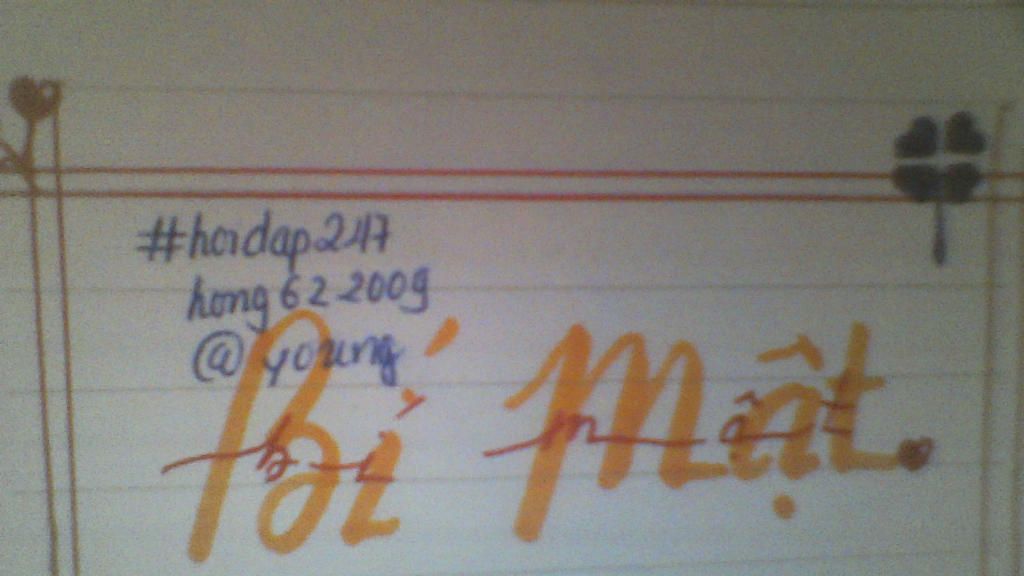 #hoidap247
hong622009
@young
Bí Mật
bí mật